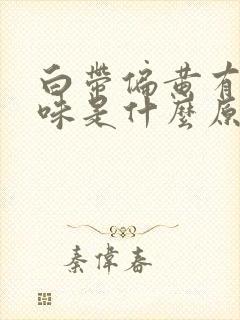 白帶偏黄有
味是什麼原
秦偉春